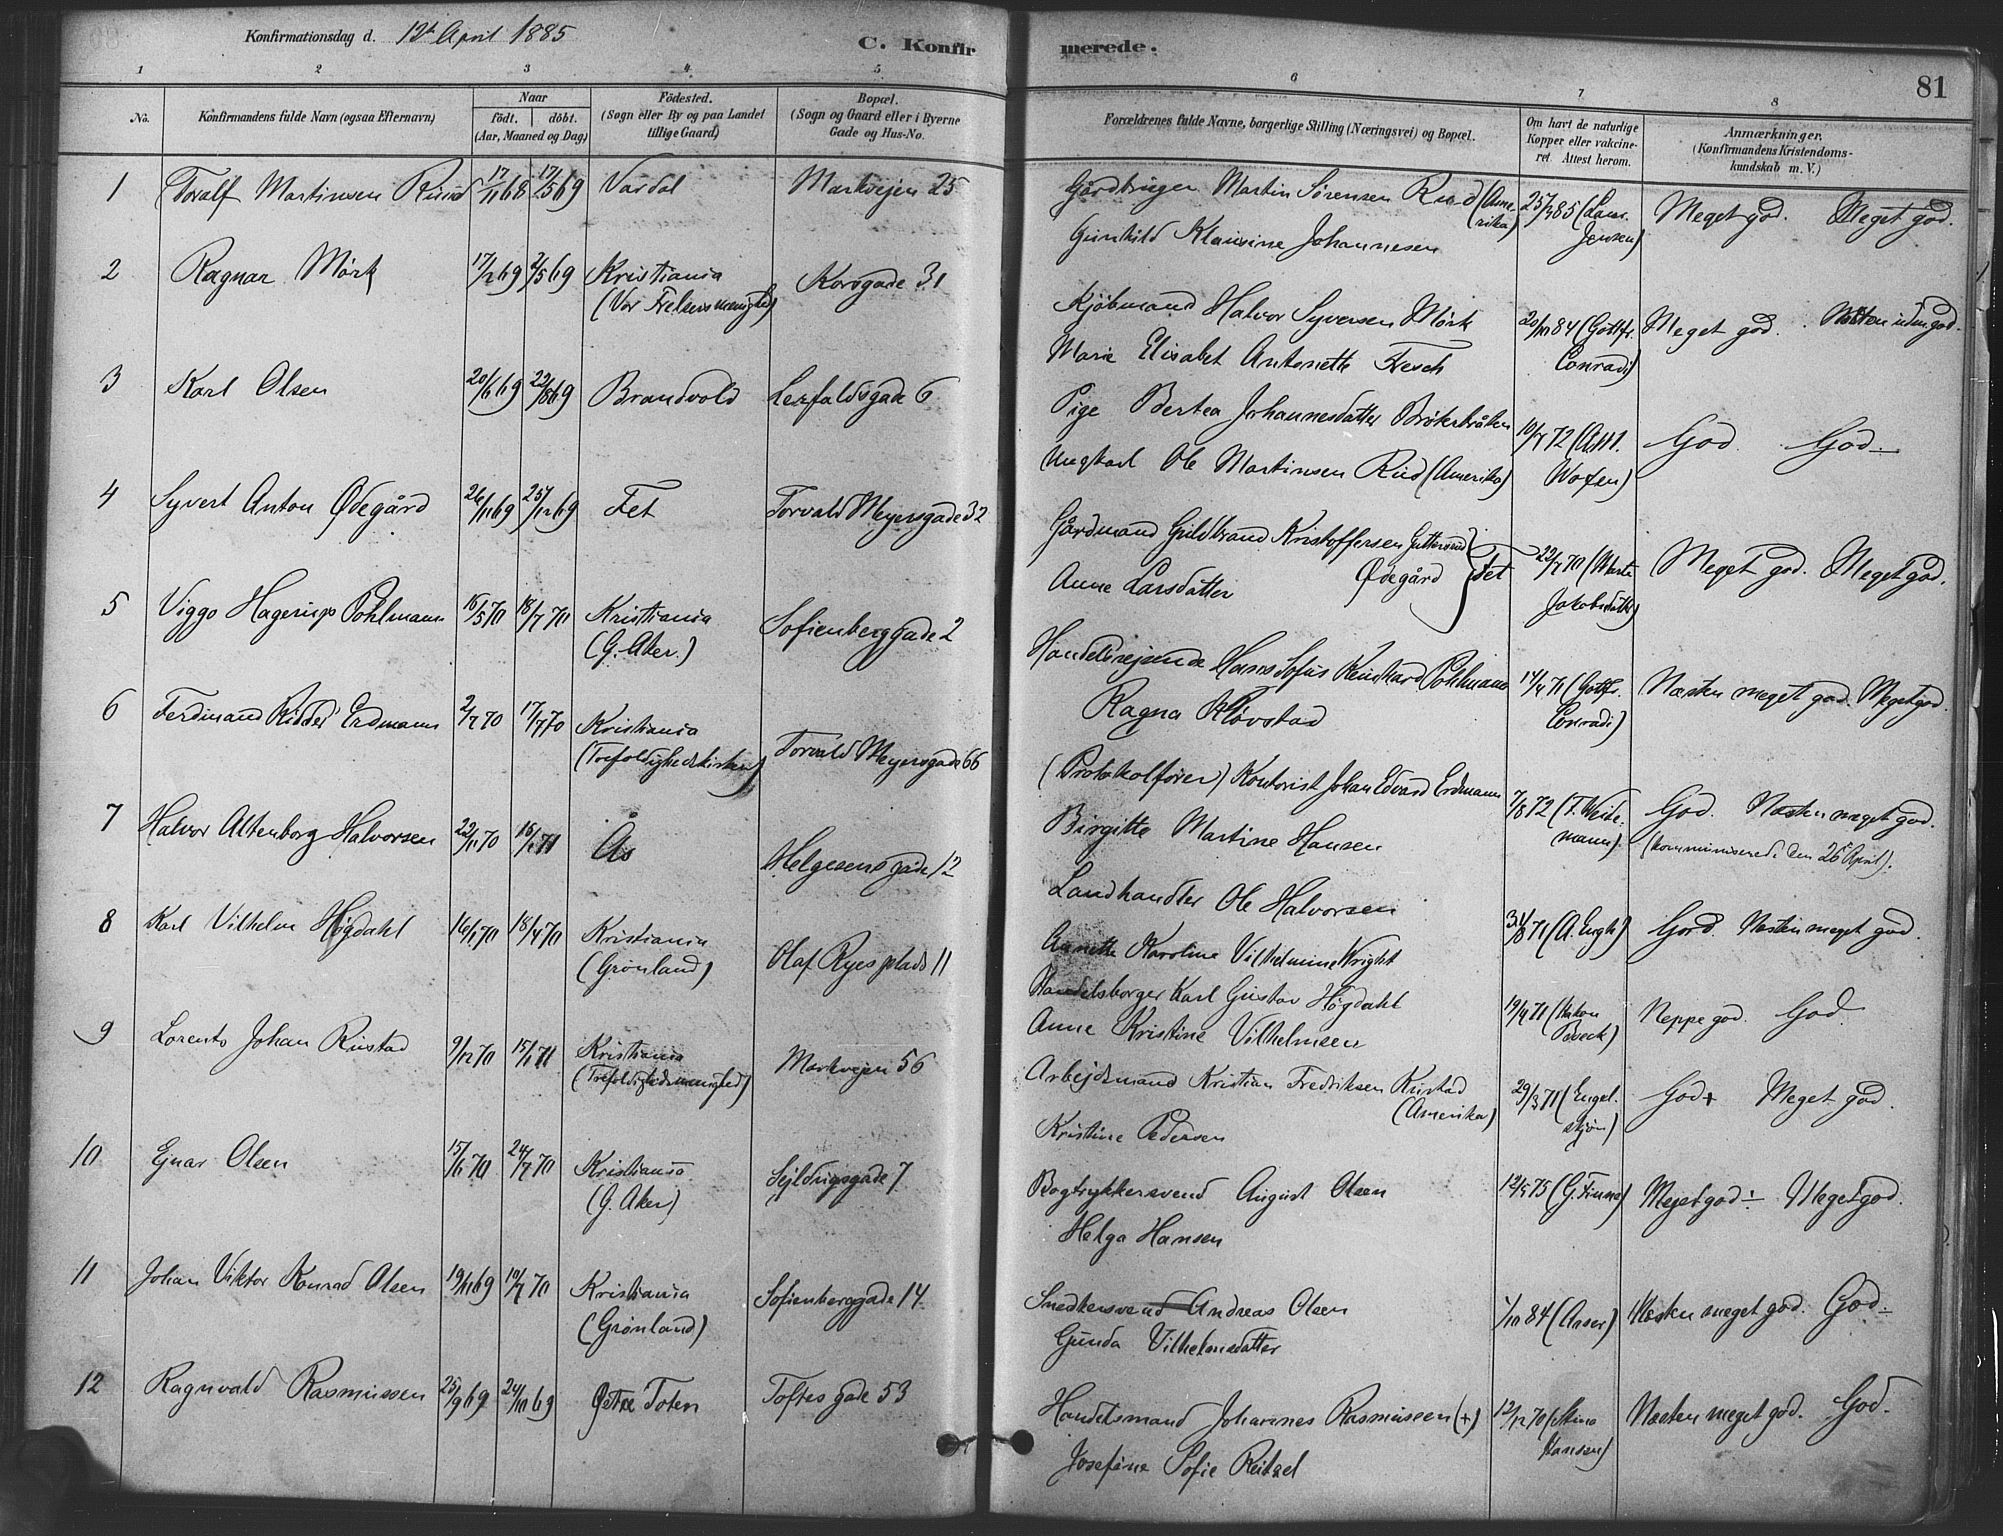 Konfirmationsdag d. 12te April 1885
C. Konfirmerede.
81
1 2 3 4 5 6 7 8
No.
Konfirmandens fulde Navn (ogsaa Efternavn)
Naar
födt. döbt.
(Aar, Maaned og Dag)
Födested.
(Sogn eller By og paa Landet
tillige Gaard)
Bopæl.
(Sogn og Gaard eller i Byerne
Gade og Hus-No.
Forældrenes fulde Navne, borgerlige Stilling (Næringsvei) og Bopæl.
Om havt de naturlige
Kopper eller vakcine-
ret. Attest herom.
Anmærkninger.
(Konfirmandens Kristendoms-
kundskab m. V.)
1 Toralf Martinsen Ruud 17/11 68 17/5 69 Vardal Markvejen 25
Gårdbruger Martin Sørensen Ruud (Ame-
rika)
Gunhild Klausine Johannesen
25/3 85 (Laur.
Jensen)
Meget god. Meget god.
2 Ragnar Mørk 17/2 69 2/5 69 Kristiania
(Vor Frelsers menighed)
Korsgade 31
Kjøbmand Halvor Syversen Mørk
Marie Elisabet Antonette Fesch
20/10 84 (Gottfr.
Conradi)
Meget god.
3 Karl Olsen 20/6 69 22/8 69 Brandvold Lerfaldsgade 6
Pige Bertea Johannesdatter
Ungkarl Ole Martinsen Rud (Amerika)
10/7 72 (
God God
4 Syvert Anton Ødegård 26/11 69 25/12 69 Fet Torvald Meyersgade 32
Gårdmand Guldbrand Kristoffersen
Ødegård } Fet
Anne Larsdatter
22/7 70 (Marte
Jakobsdatter)
Meget god. Meget god.
5 Viggo Hagerup Pohlmann 16/5 70 18/7 70 Kristiania
(G. Aker.)
Sofienberggade 2
Handelsrejsende Hans Sofus Reinhard Pohlmann
Ragna Kløvstad
14/4 71 (Gottfr.
Conradi)
Næsten meget god. Meget god.
6 Ferdinand Ridder Erdmann 2/7 70 17/7 70 Kristiania
(Trefoldighedskirken)
Torvald Meyersgade 66
(Protokolfører) Kontorist Johan Edvard Erdmann
Birgitte Martine Hansen
7/8 72 (F. Weide-
mann)
God. Næsten meget god.
(kommunicerede den 26 April).
7 Halvor Altenborg Halvorsen 22/11 70 16/1 71 Ås Helgesensgade 12
Landhandler Ole Halvorsen
Annette Karoline Vilhelmine Wright
31/8 71 (A. Engh)
God. Næsten meget god.
8 Karl Vilhelm Høgdahl 16/1 70 18/4 70 Kristiania
(Grønland)
Olaf Ryes plads 11
Handelsborger Karl Gustav Høgdahl
Anne Kristine Vilhelmsen
19/4 71 (Hakon
Neppe god. God
9 Lorents Johan Rustad 9/12 70 15/1 71 Kristiania
(Trefoldighedsmenighed)
Markvejen 56
Arbejdsmand Kristian Fredriksen Rustad
(Amerika)
Kristine Pedersen
29/3 71 (Engel-
skjøn)
God+ Meget god.
10 Ejnar Olsen 15/6 70 24/7 70 Kristiania
(G. Aker)
Sejldugsgade 7
Bogtrykkersvend August Olsen
Helga Hansen
12/5 75 (G. Finne)
Meget god ÷ Meget god.
11 Johan Viktor Konrad Olsen 19/11 69 10/7 70 Kristiania
(Grønland)
Sofienberggade 14
Snedkersvend Andreas Olsen
Gunda Vilhelmsdatter
1/10 84 (Asser)
Næsten meget god. God ÷
12 Ragnvald Rasmussen 25/9 69 24/10 69 Østre Toten Toftesgade 53
Handelsmand Johannes Rasmussen (+)
Josefine Sofie Reitzel
12/12 70 (Stina
Hansen)
Næsten meget god. God.